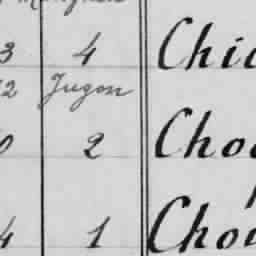 3 4 Chic
2 Jugon
0 2 Cho
4 1 Chou